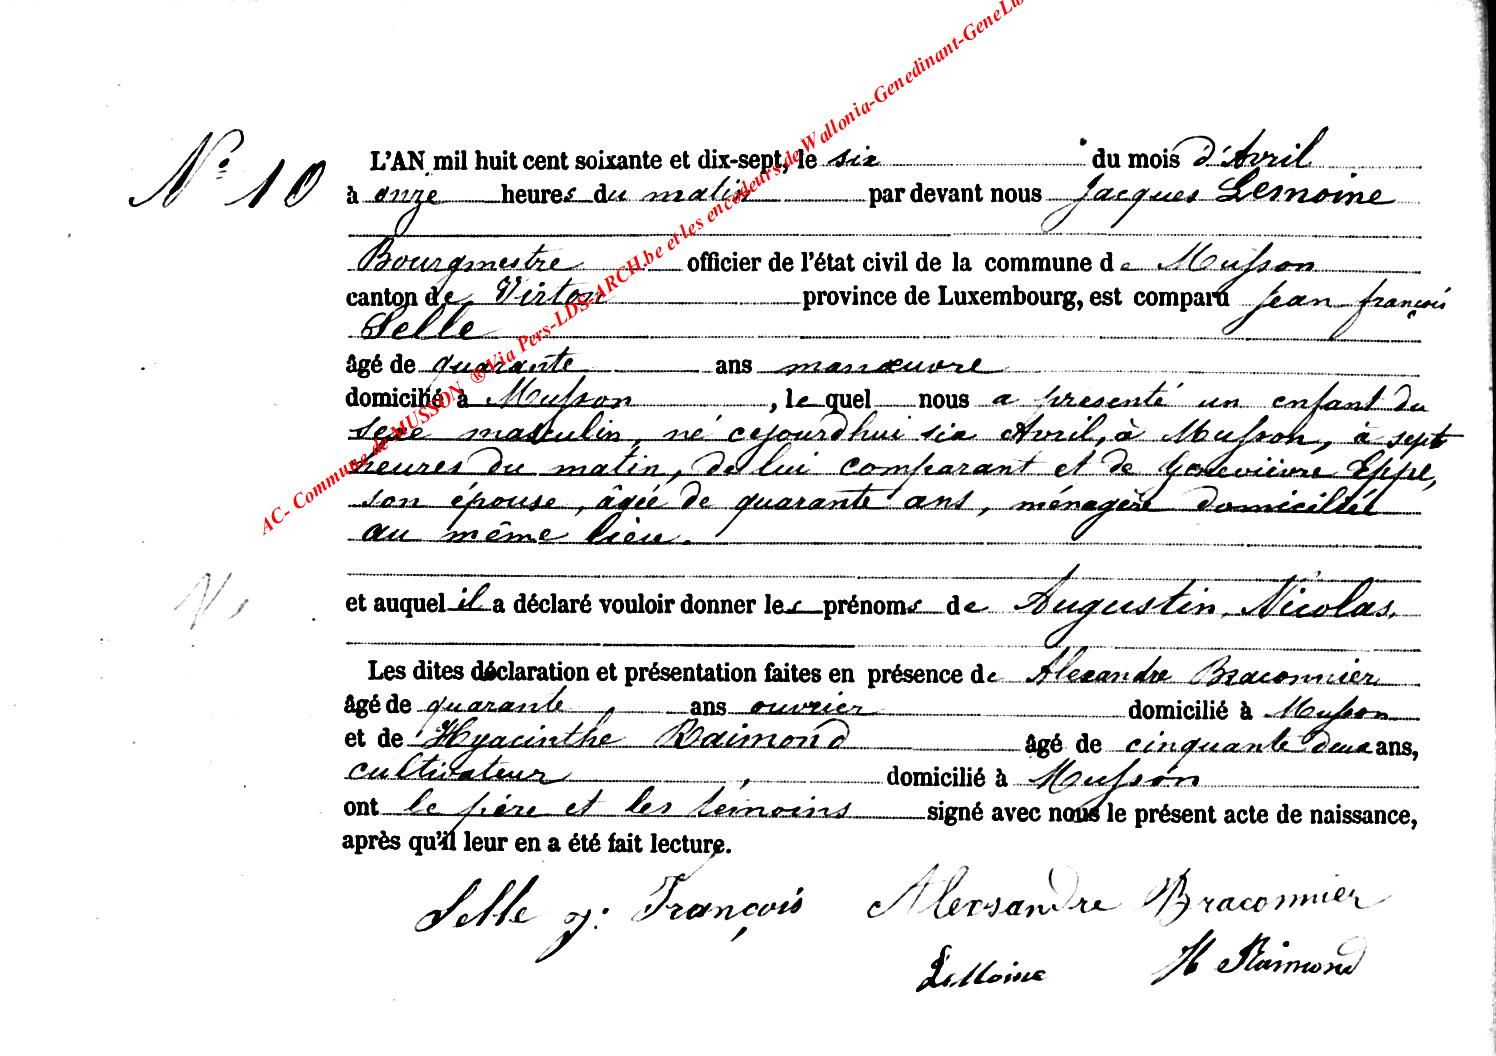 N° 10
L'AN mil huit cent soixante et dix-sept, le six du mois d'Avril
à onze heures du matin par devant nous Jacques Lemoine
Bourgmestre officier de l'état civil de la commune de Musson
canton de Virton province de Luxembourg, est comparu Jean françois
Selle
âgé de quarante ans manœuvre
domicilié à Musson, lequel nous a présenté un enfant du
sexe masculin, né cejourd'hui six Avril, à Musson, à sept
heures du matin, de lui comparant et de Geneviève Eppe,
son épouse, âgée de quarante ans, ménagère domiciliée
au même lieu.
et auquel il a déclaré vouloir donner les prénoms de Augustin, Nicolas.
Les dites déclaration et présentation faites en présence de Alexandre Braconnier
âgé de quarante, ans ouvrier domicilié à Musson
et de Hyacinthe Raimond âgé de cinquante deux ans,
cultivateur, domicilié à Musson
ont le père et les témoins signé avec nous le présent acte de naissance,
après qu'il leur en a été fait lecture.
Selle J: François Alexsandre Braconnier
LeMoine H Raimond
AC- Commune de MUSSON ® Via Pers-LDS-ARCH.be et les encodeurs de Wallonia-Genedinant-GeneLux